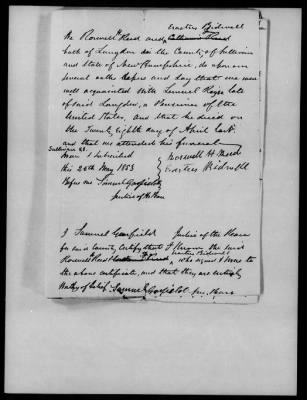 Erastus Bidwell
We Roswell H Reed and
both of Langdon in the County of Sullivan
and State of New Hampshire, do upon our
several oaths depose and say that we were
well acquainted with Lemuel
late
of said Langdon, a Pensioner of the
United States, and that he died on
the Twenty Eighth day of April last.
and that we attended his funeral
Sullivan SS.
Sworn & Subscribed
this 28th May 1853
Before me Samuel Garfield
Justice of the Peace
Roswell H Reed
Erastus Bidwell
I Samuel Garfield Justice of the Peace
for said County Certify that I know the said
Erastus Bidwell
Roswell H Reed
who signed & swore to
the above certificate, and that they are entirely
worthy of belief. Samuel Garfield Jus. Peace